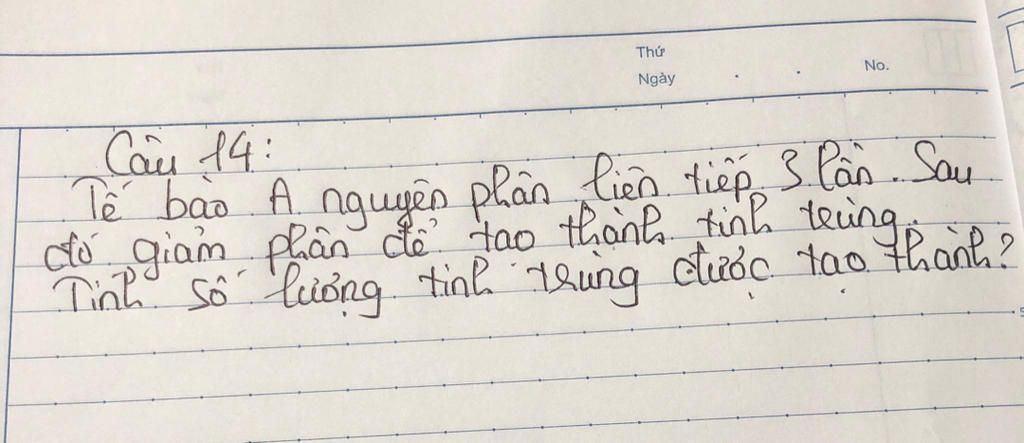 Thứ
Ngày . . No.
Câu 14:
Tế bào A nguyên phân liên tiếp 3 lần. Sau
đó giảm phân để tạo thành tinh trùng.
Tính số lượng tinh trùng được tạo thành?